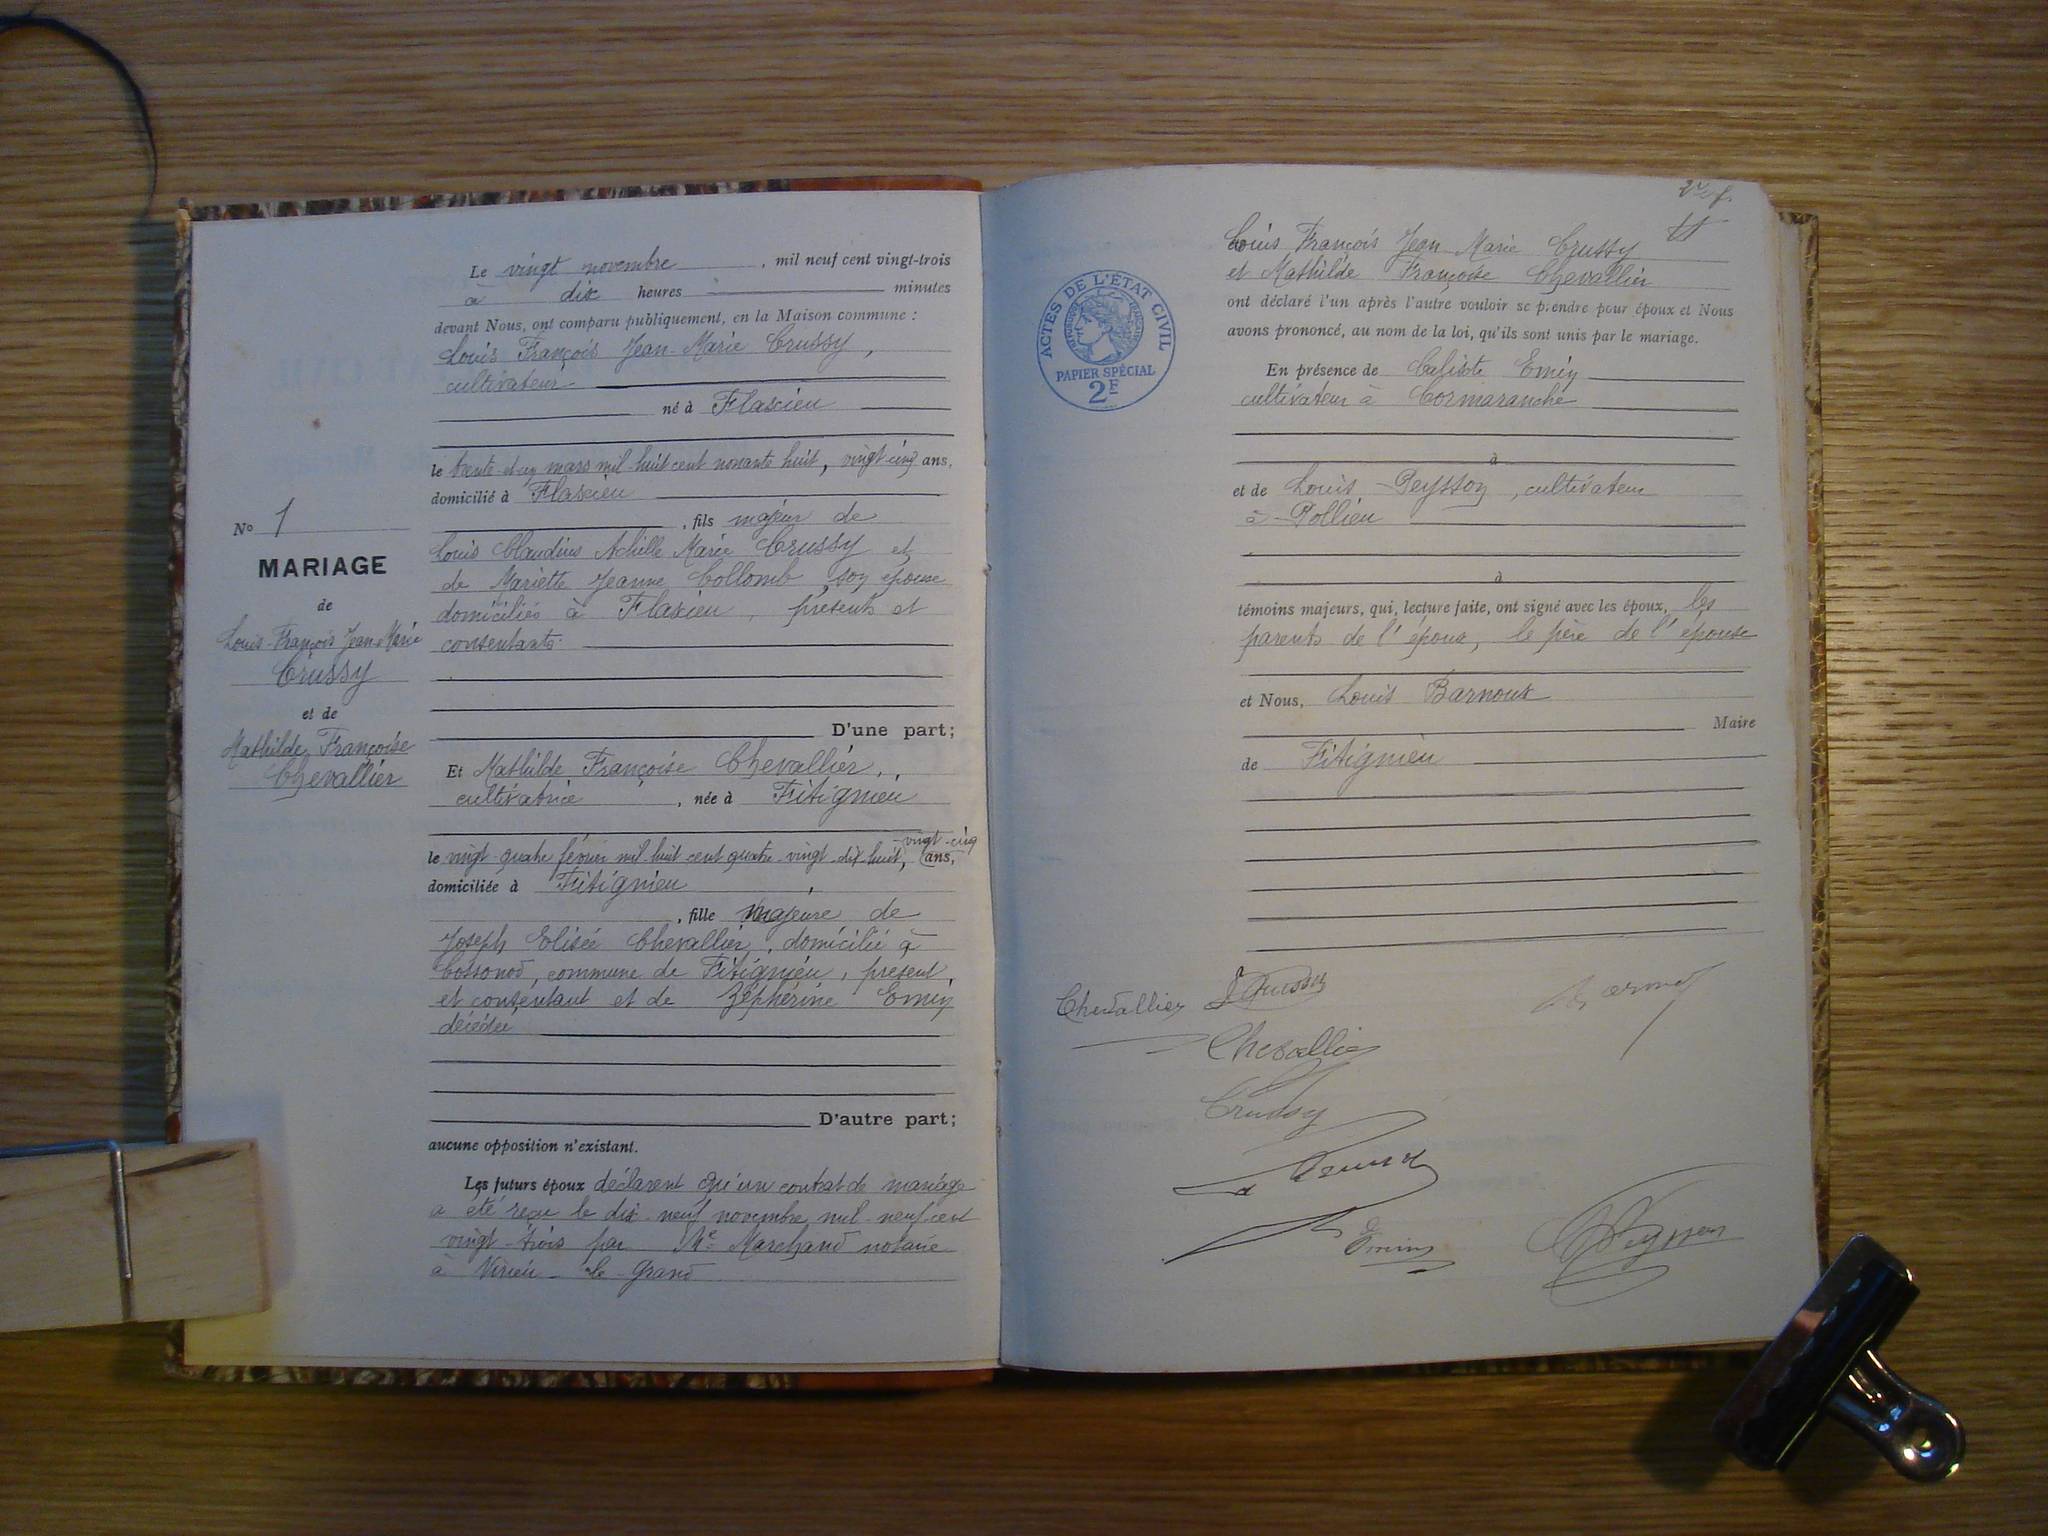 Le vingt novembre, mil neuf cent vingt-trois
à dix heures minutes
devant Nous, ont comparu publiquement, en la Maison commune :
Louis François Jean Marie Crussy,
cultivateur
né à Flaxieu
le trente-et-un mars mil-huit cent nonante huit, vingt-cinq ans,
domicilié à Flaxieu
, fils majeur de
Louis Claudius Achille Marie Crussy et
de Mariette Jeanne Collomb, son épouse
domiciliés à Flaxieu, présents et
consentants.
D'une part;
Et Mathilde Françoise Chevallier,
cultivatrice, née à Fitignieu
vingt-cinq
le vingt-quatre février mil-huit-cent quatre-vingt-dix-huit, ans,
domiciliée à Fitignieu,
, fille majeure de
Joseph Elisée Chevallier, domicilié à
Cossonod, commune de Fitignieu, présent,
et consentant et de Zéphérine Emin
décédée
D'autre part;
aucune opposition n'existant.
Les futurs époux déclarent qu'un contrat de mariage
a été reçu le dix-neuf novembre mil-neuf-cent
vingt-trois par Me Marchand notaire
à Virieu-le-Grand
No 1
MARIAGE
de
Louis-François Jean-Marie
Crussy
et de
Mathilde Françoise
Chevallier
2e f.
Louis François Jean Marie Crussy
et Mathilde Françoise Chevallier
ont déclaré l'un après l'autre vouloir se prendre pour époux et Nous
avons prononcé, au nom de la loi, qu'ils sont unis par le mariage.
En présence de Calixte Emin
cultivateur à Cormaranche
à
et de Louis Peysson, cultivateur
à Pollieu
à
témoins majeurs, qui, lecture faite, ont signé avec les époux, les
parents de l'époux, le père de l'épouse
et Nous, Louis Barnoux
Maire
de Fitignieu
ACTES DE L'ÉTAT CIVIL
RÉPUBLIQUE FRANÇAISE
PAPIER SPÉCIAL
2F
Chevallier
Chevallier
Crussy
Emin
Peysson